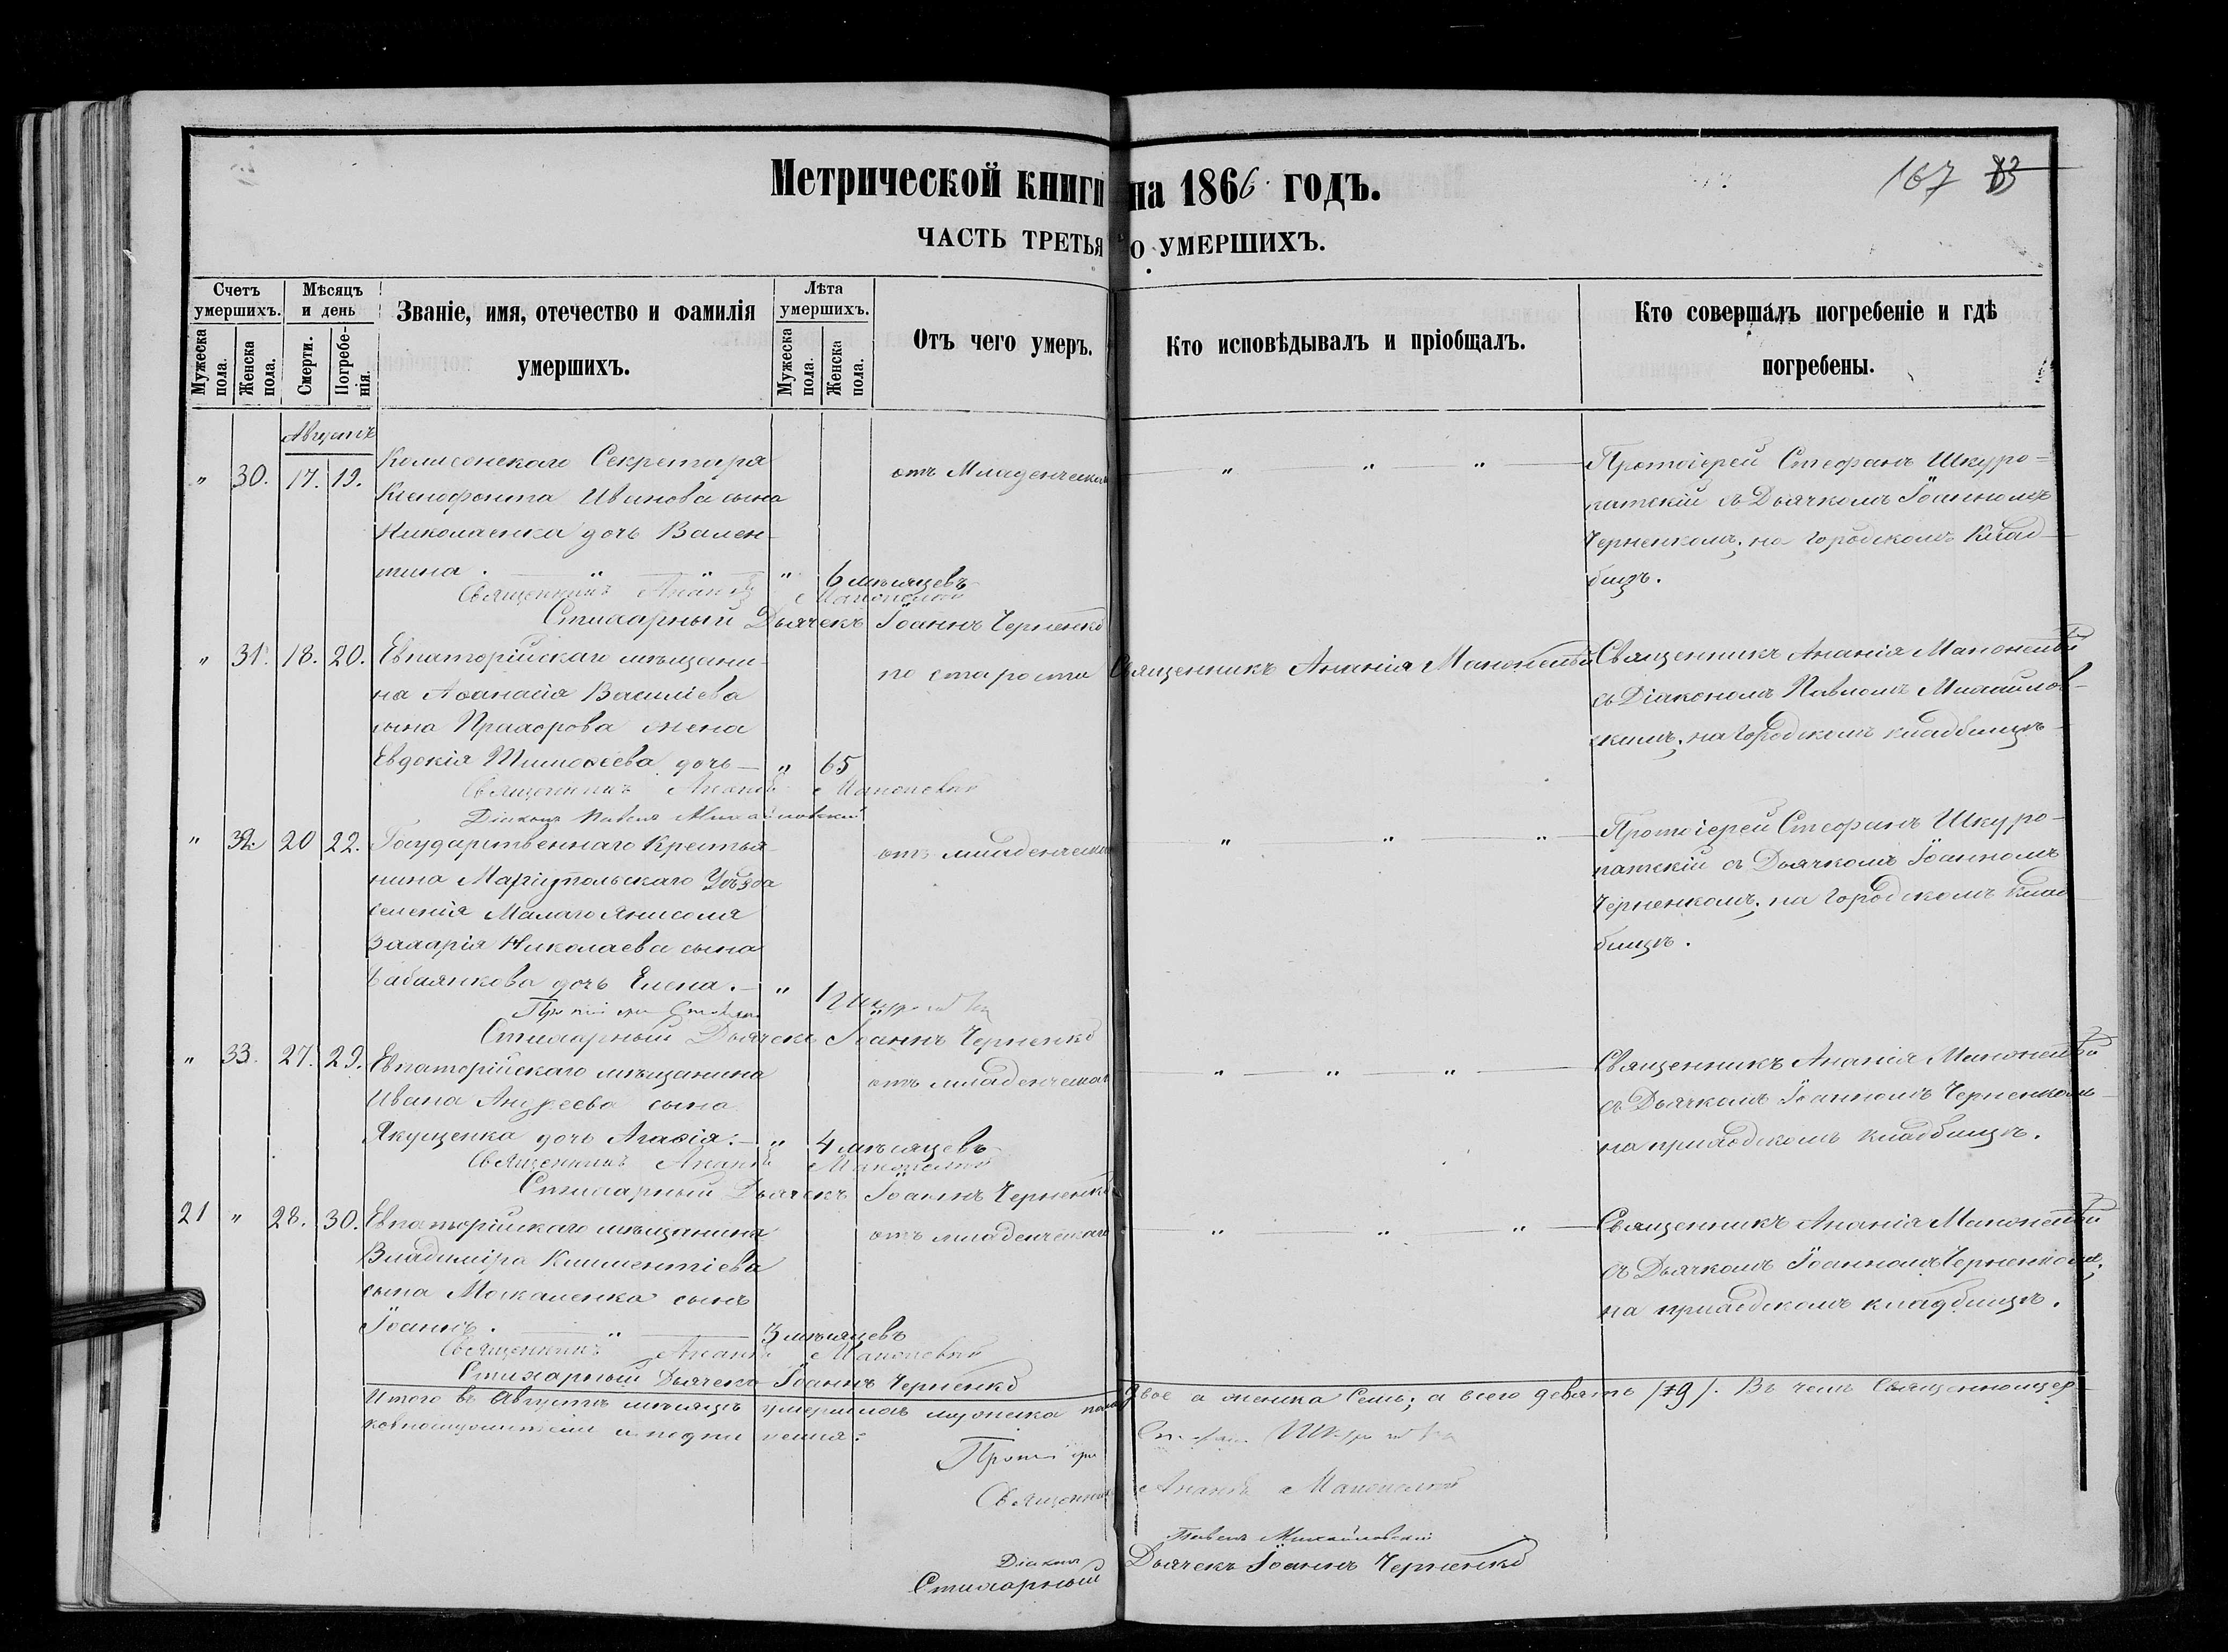 Метрической книги на 1866 годъ.
167 83
ЧАСТЬ ТРЕТЬЯ О УМЕРШИХЪ.
Счетъ умершихъ.
Мужеска пола.
Женска пола.
Мѣсяцъ и день
Смерти.
Погребенія.
Званіе, имя, отечество и фамилія умершихъ.
Лѣта умершихъ.
Мужеска пола.
Женска пола.
Отъ чего умеръ.
Кто исповѣдывалъ и пріобщалъ.
Кто совершалъ погребеніе и гдѣ погребены.
Августъ
" 30. 17. 19.
Колисенскаго Секретаря
Ксенофонта Иванова сына
Николаенка дочь Вален-
тина. " " 6 мѣсяцевъ
отъ Младенческаго
" " "
Протоіерей Стефанъ Шкуро-
патскій съ Дьячкомъ Іоанномъ
Черненкомъ; на городскомъ клад-
бищѣ.
Священникъ Ананія Маконскій
Стихарный Дьячекъ Іоаннъ Черненко
" 31. 18. 20.
Евпаторійскаго мѣщани-
на Аѳанасія Васильева
сына Прахорова жена
Евдокія Тимоѳеева дочь " 65
по старости
Священникъ Ананія
Священникъ Ананія
съ Діакономъ Павломъ Михайлов-
скимъ; на городскомъ кладбищѣ
Священникъ Ананія
Діаконъ Павелъ Михайловскій
" 32. 20 22.
Государственнаго Крестья-
нина Маріупольскаго Уѣзда
селенія Малаго Янисоля
Захарія Николаева сына
дочь Елена. " 1
отъ младенческаго
" " "
Протоіерей Стефанъ Шкуро-
патскій съ Дьячкомъ Іоанномъ
Черненкомъ; на городскомъ клад-
бищѣ.
Стихарный Дьячекъ Іоаннъ Черненко
" 33. 27. 29.
Евпаторійскаго мѣщанина
Ивана Андреева сына
Якущенка дочь Агаѳія. " 4 мѣсяцевъ
отъ младенческаго
" " "
Священникъ Ананія
съ Дьячкомъ Іоанномъ Черненкомъ
на приходскомъ кладбищѣ.
Священникъ Ананія
Стихарный Дьячекъ Іоаннъ Черненко
21 " 28. 30.
Евпаторійскаго мѣщанина
Владиміра Климентіева
сына Москаленка сынъ
Іоаннъ. " 3 мѣсяцевъ
отъ младенческаго
" " "
Священникъ Ананія
съ Дьячкомъ Іоанномъ Черненкомъ;
на приходскомъ кладбищѣ.
Священникъ Ананія
Стихарный Дьячекъ Іоаннъ Черненко
Итого въ Августѣ мѣсяцѣ умершихъ мужеска пола двое а женска Семь; а всего девять /9/. Въ чемъ Священноцер-
ковнослужители и подписуемся:
Протоіерей Стефанъ
Священникъ Ананія
Діаконъ Павелъ Михайловскій
Стихарный Дьячекъ Іоаннъ Черненко